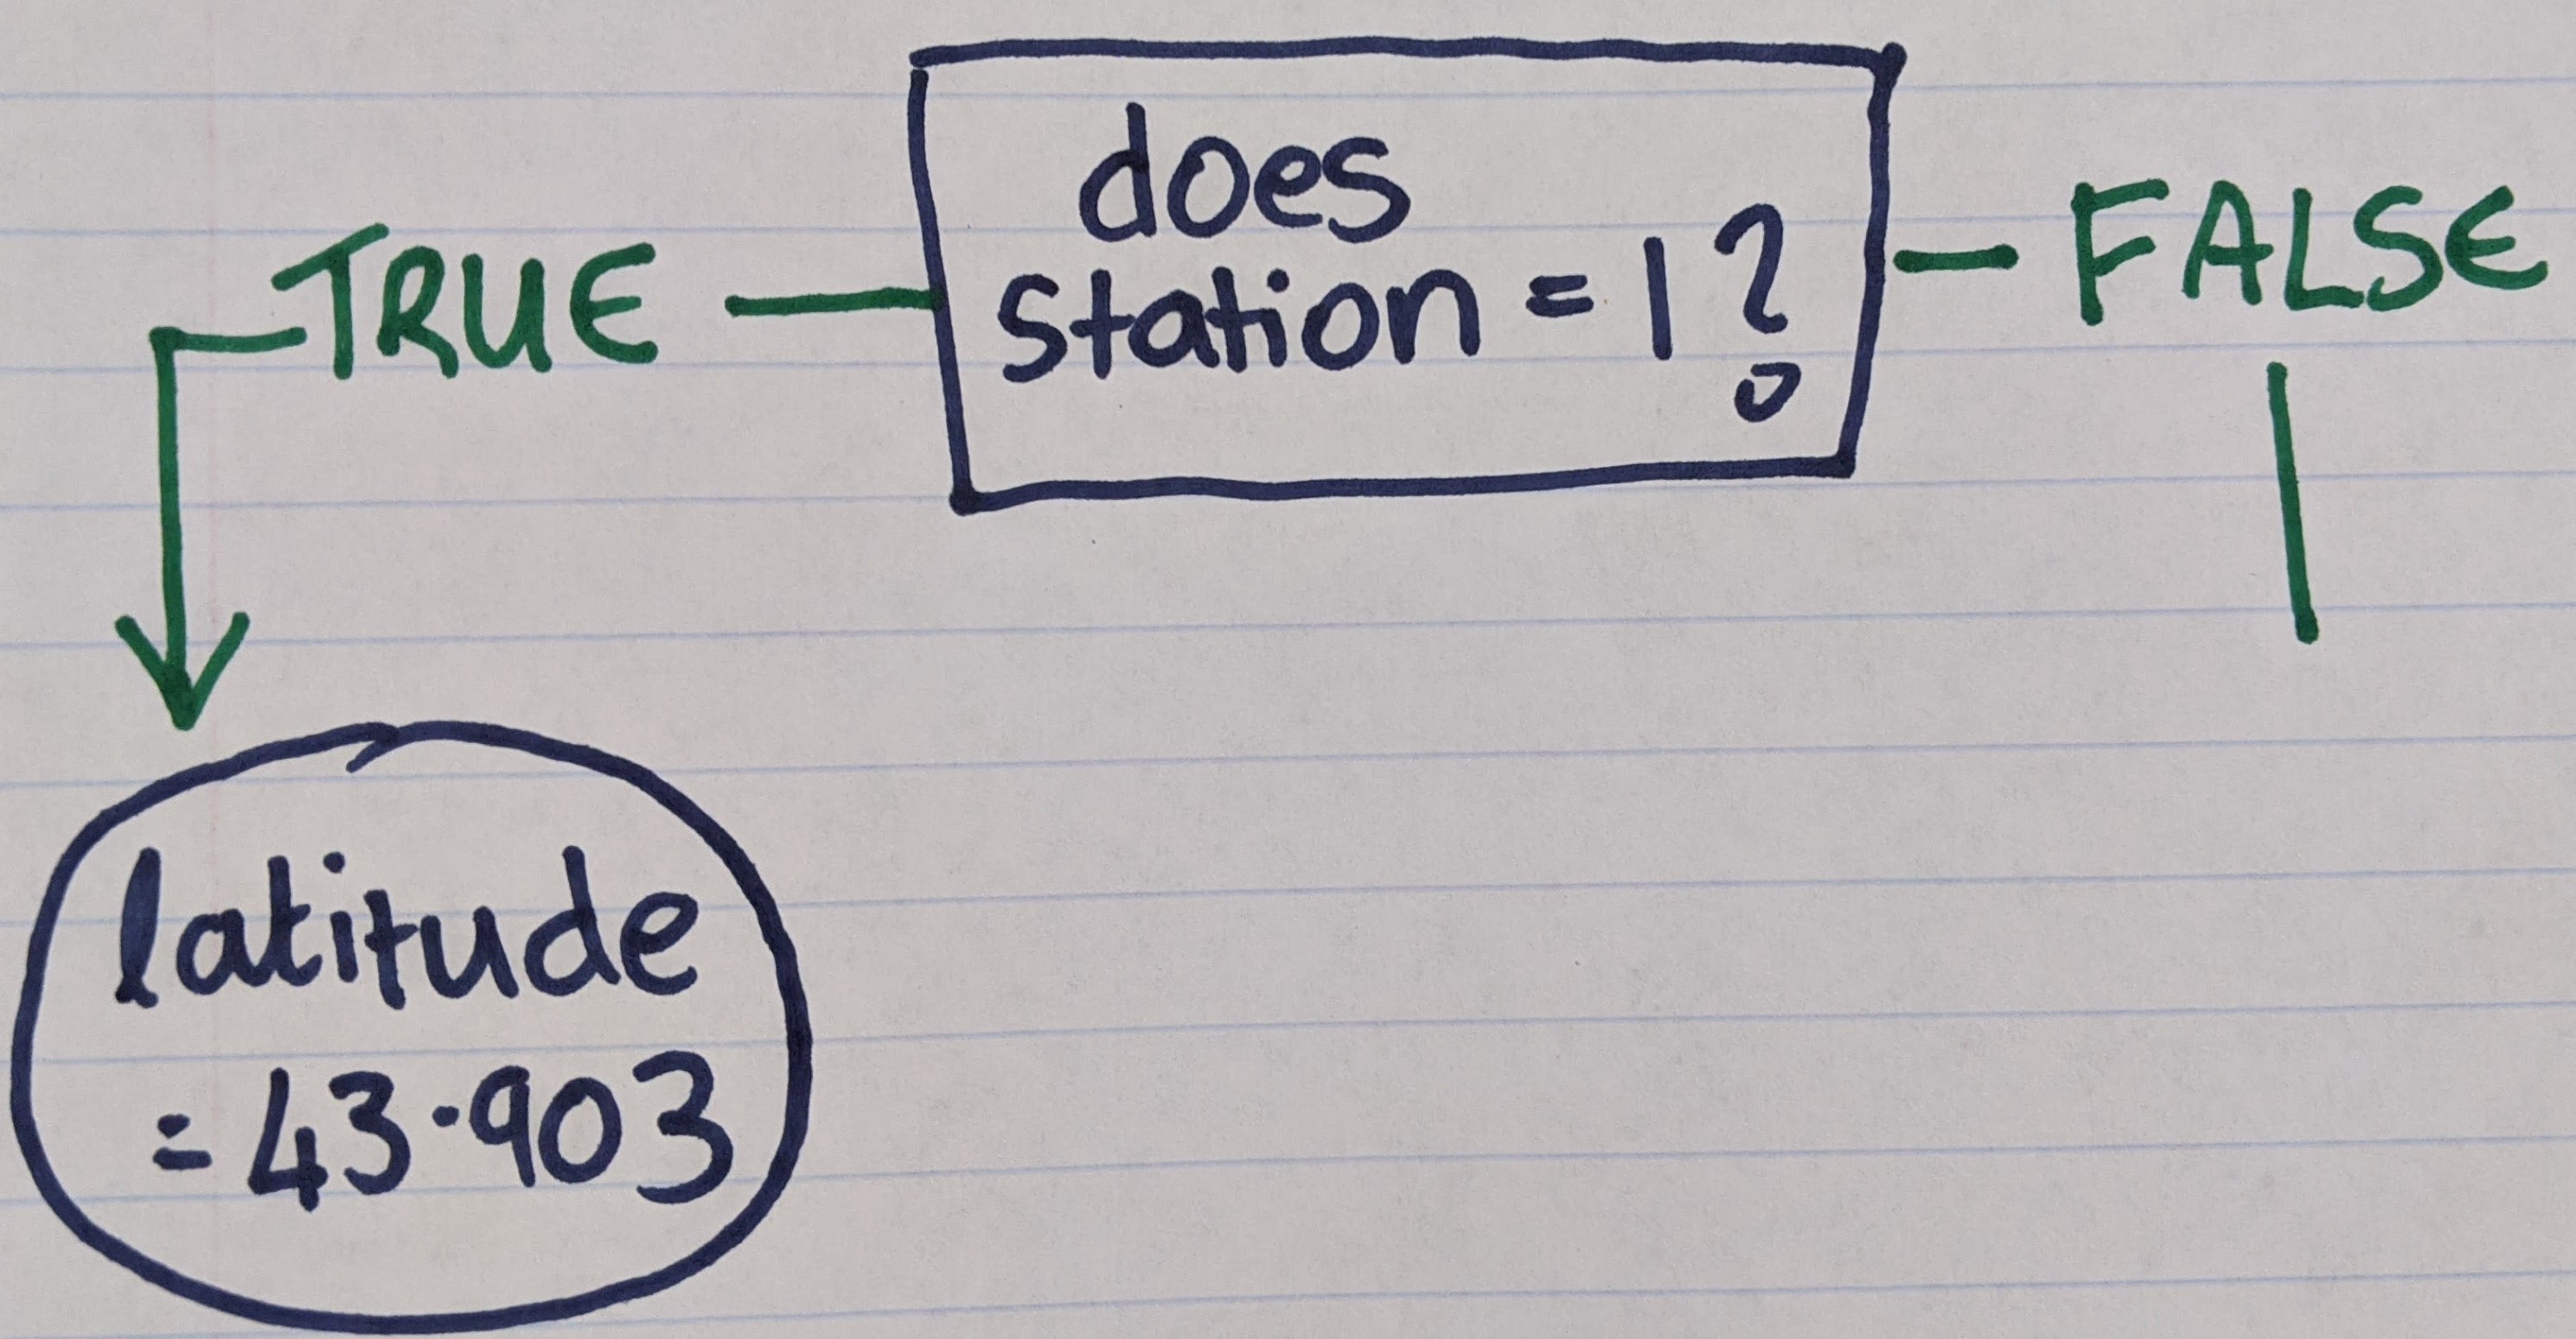 does
station = 1?
TRUE
FALSE
latitude
= 43.903